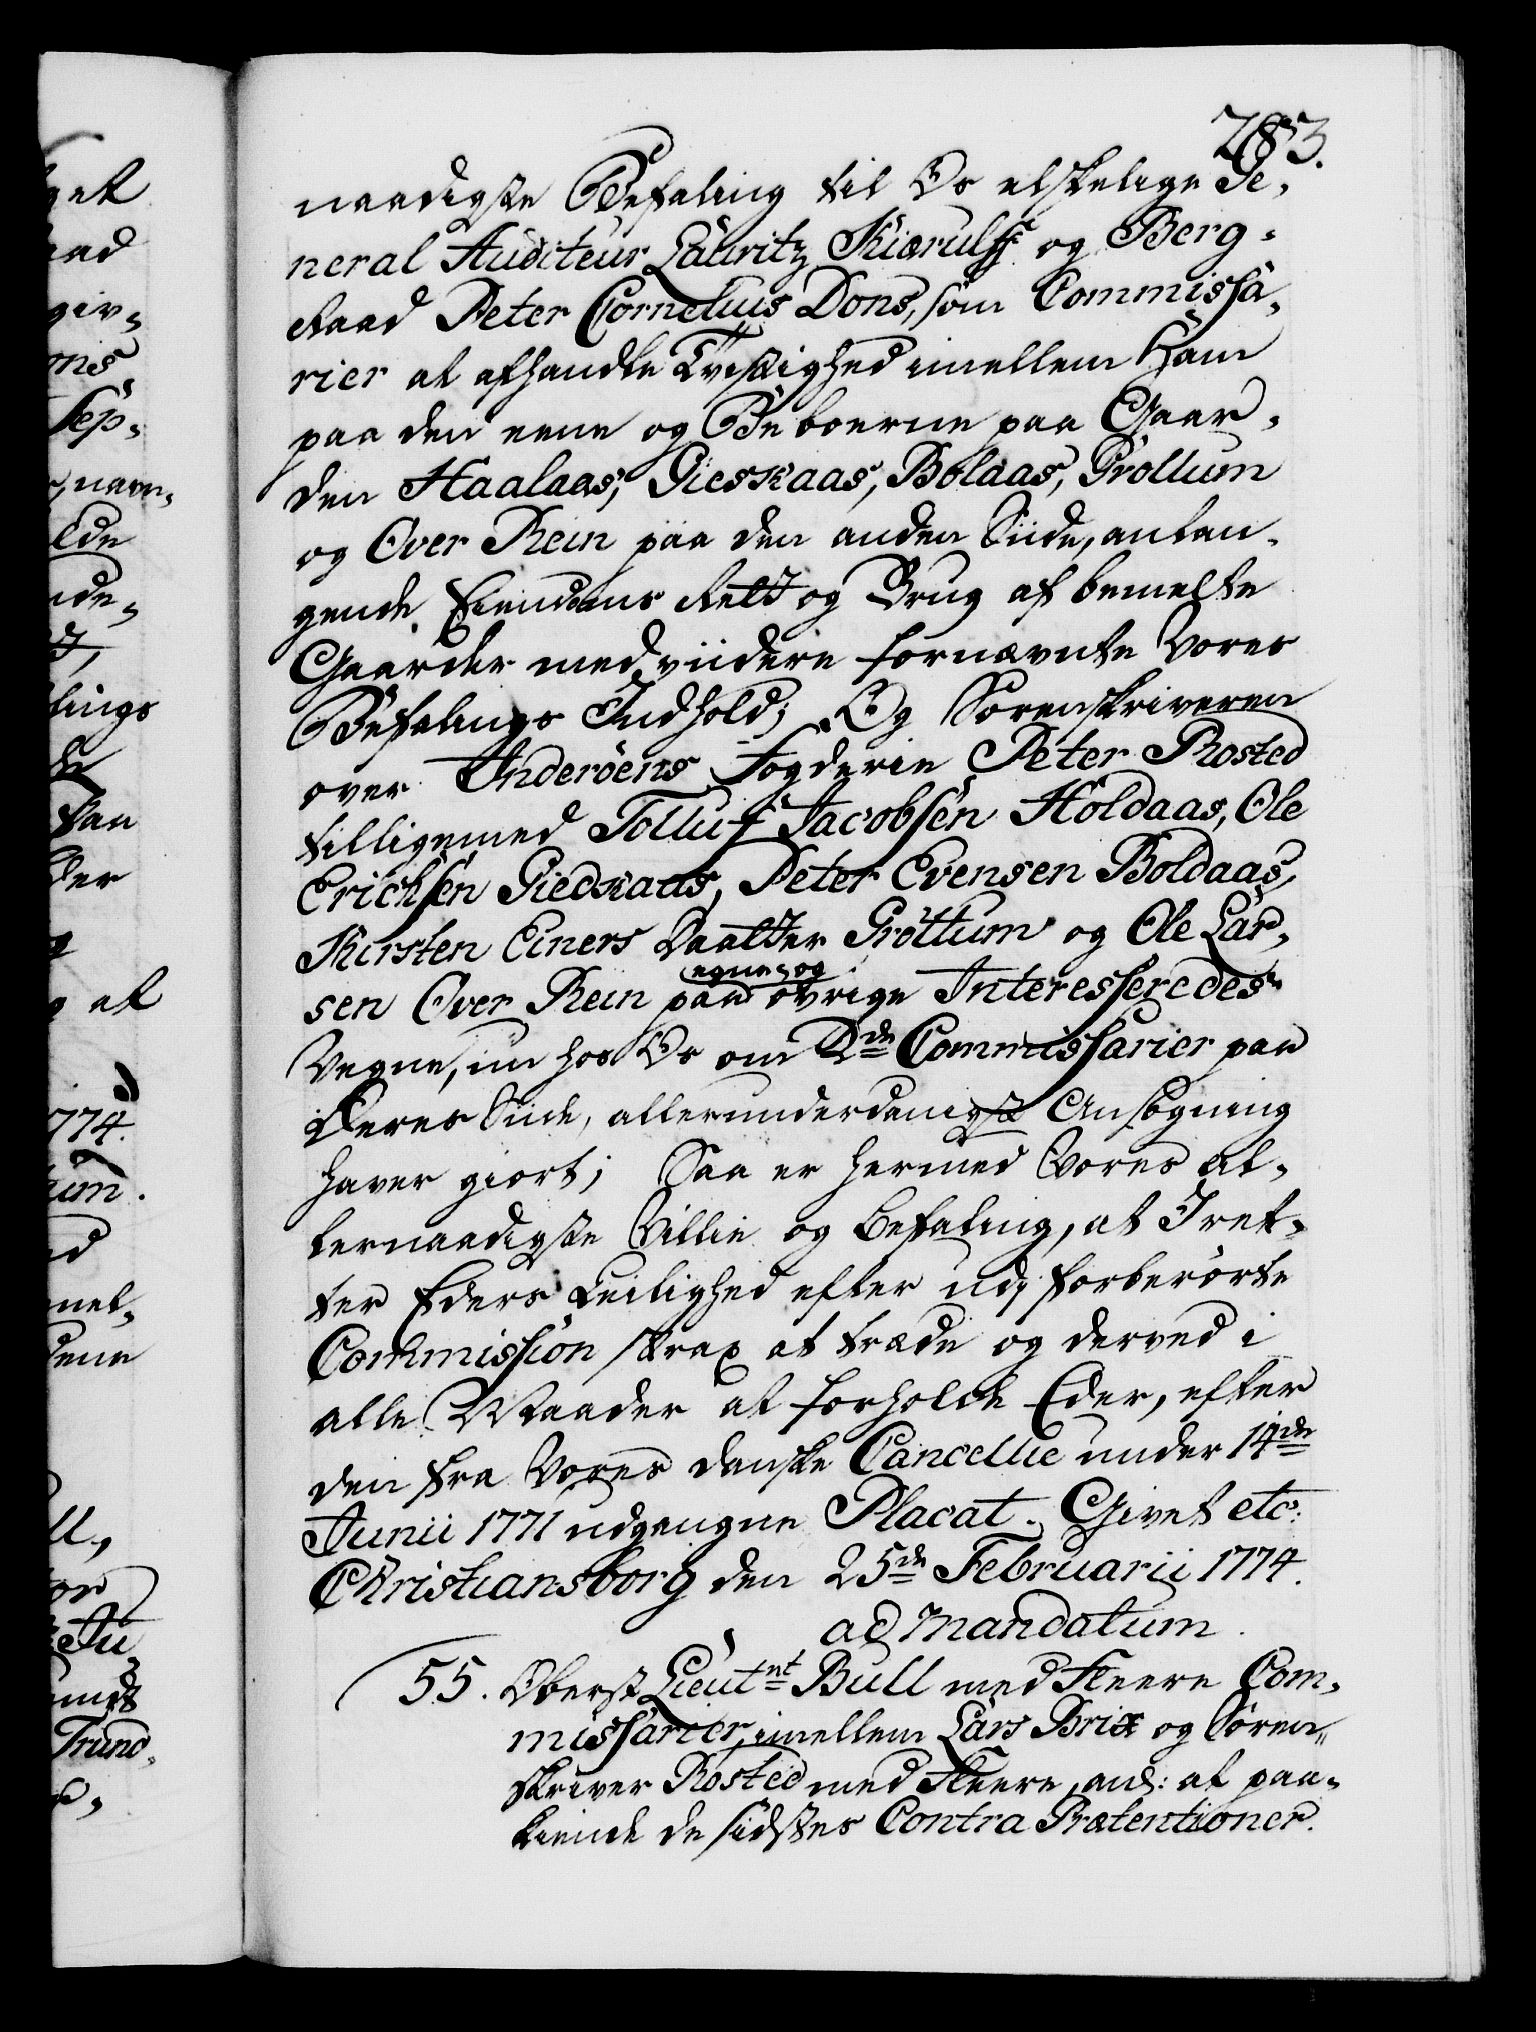 283.
naadigste Befaling til Os elskelige Ge,
neral Auditeur Lauritz Kiærulff og Berg-
Raad Peter Cornelius Dons, som Commissa,
rier at afhandle Tvistighed imellem Ham
paa den eene og Beboerne paa Gaar,
den Haalaas, Gieskaas, Bolaas, Gröllum
og Over Rein paa den anden Siide, anlan-
gende Eiendoms Rett og Brug af bemelte
Gaarder med viidere fornævnte Vores
Befalings Indhold; Og Sorenskriveren
over Inderöens Fogderie Peter Rosted
tilligemed Tolluf Jacobsen Holdaas, Ole
Erichsen Giedskaas, Peter Evensen Boldaas,
Kirsten Einers Daatter Gröttum og Ole Lar,
sen Over Rein paa egne og övrige Interesseredes
Vegne, nu hos Os om 2de Commissarier paa
Deres Siide, allerunderdanigst Ansögning
haver giort; Saa er hermed Vores al-
lernaadigste Villie og Befaling, at I ret-
ter Eders Leilighed efter udj forberörte
Commission strax at træde og derved i
alle Maader at forholde Eder, efter
den fra Vores danske Cancellie under 14de
Junii 1771 udgangne Placat. Givet etc:
Christiansborg den 25de Februarii 1774.
ad Mandatum.
55. Oberst Lieutnt Bull med Fleere Com,
missarier, imellem Lars Brix og Soren,
skriver Rosted med Fleere, anl: at paa-
kiende de sidstes Contra Prætentioner.